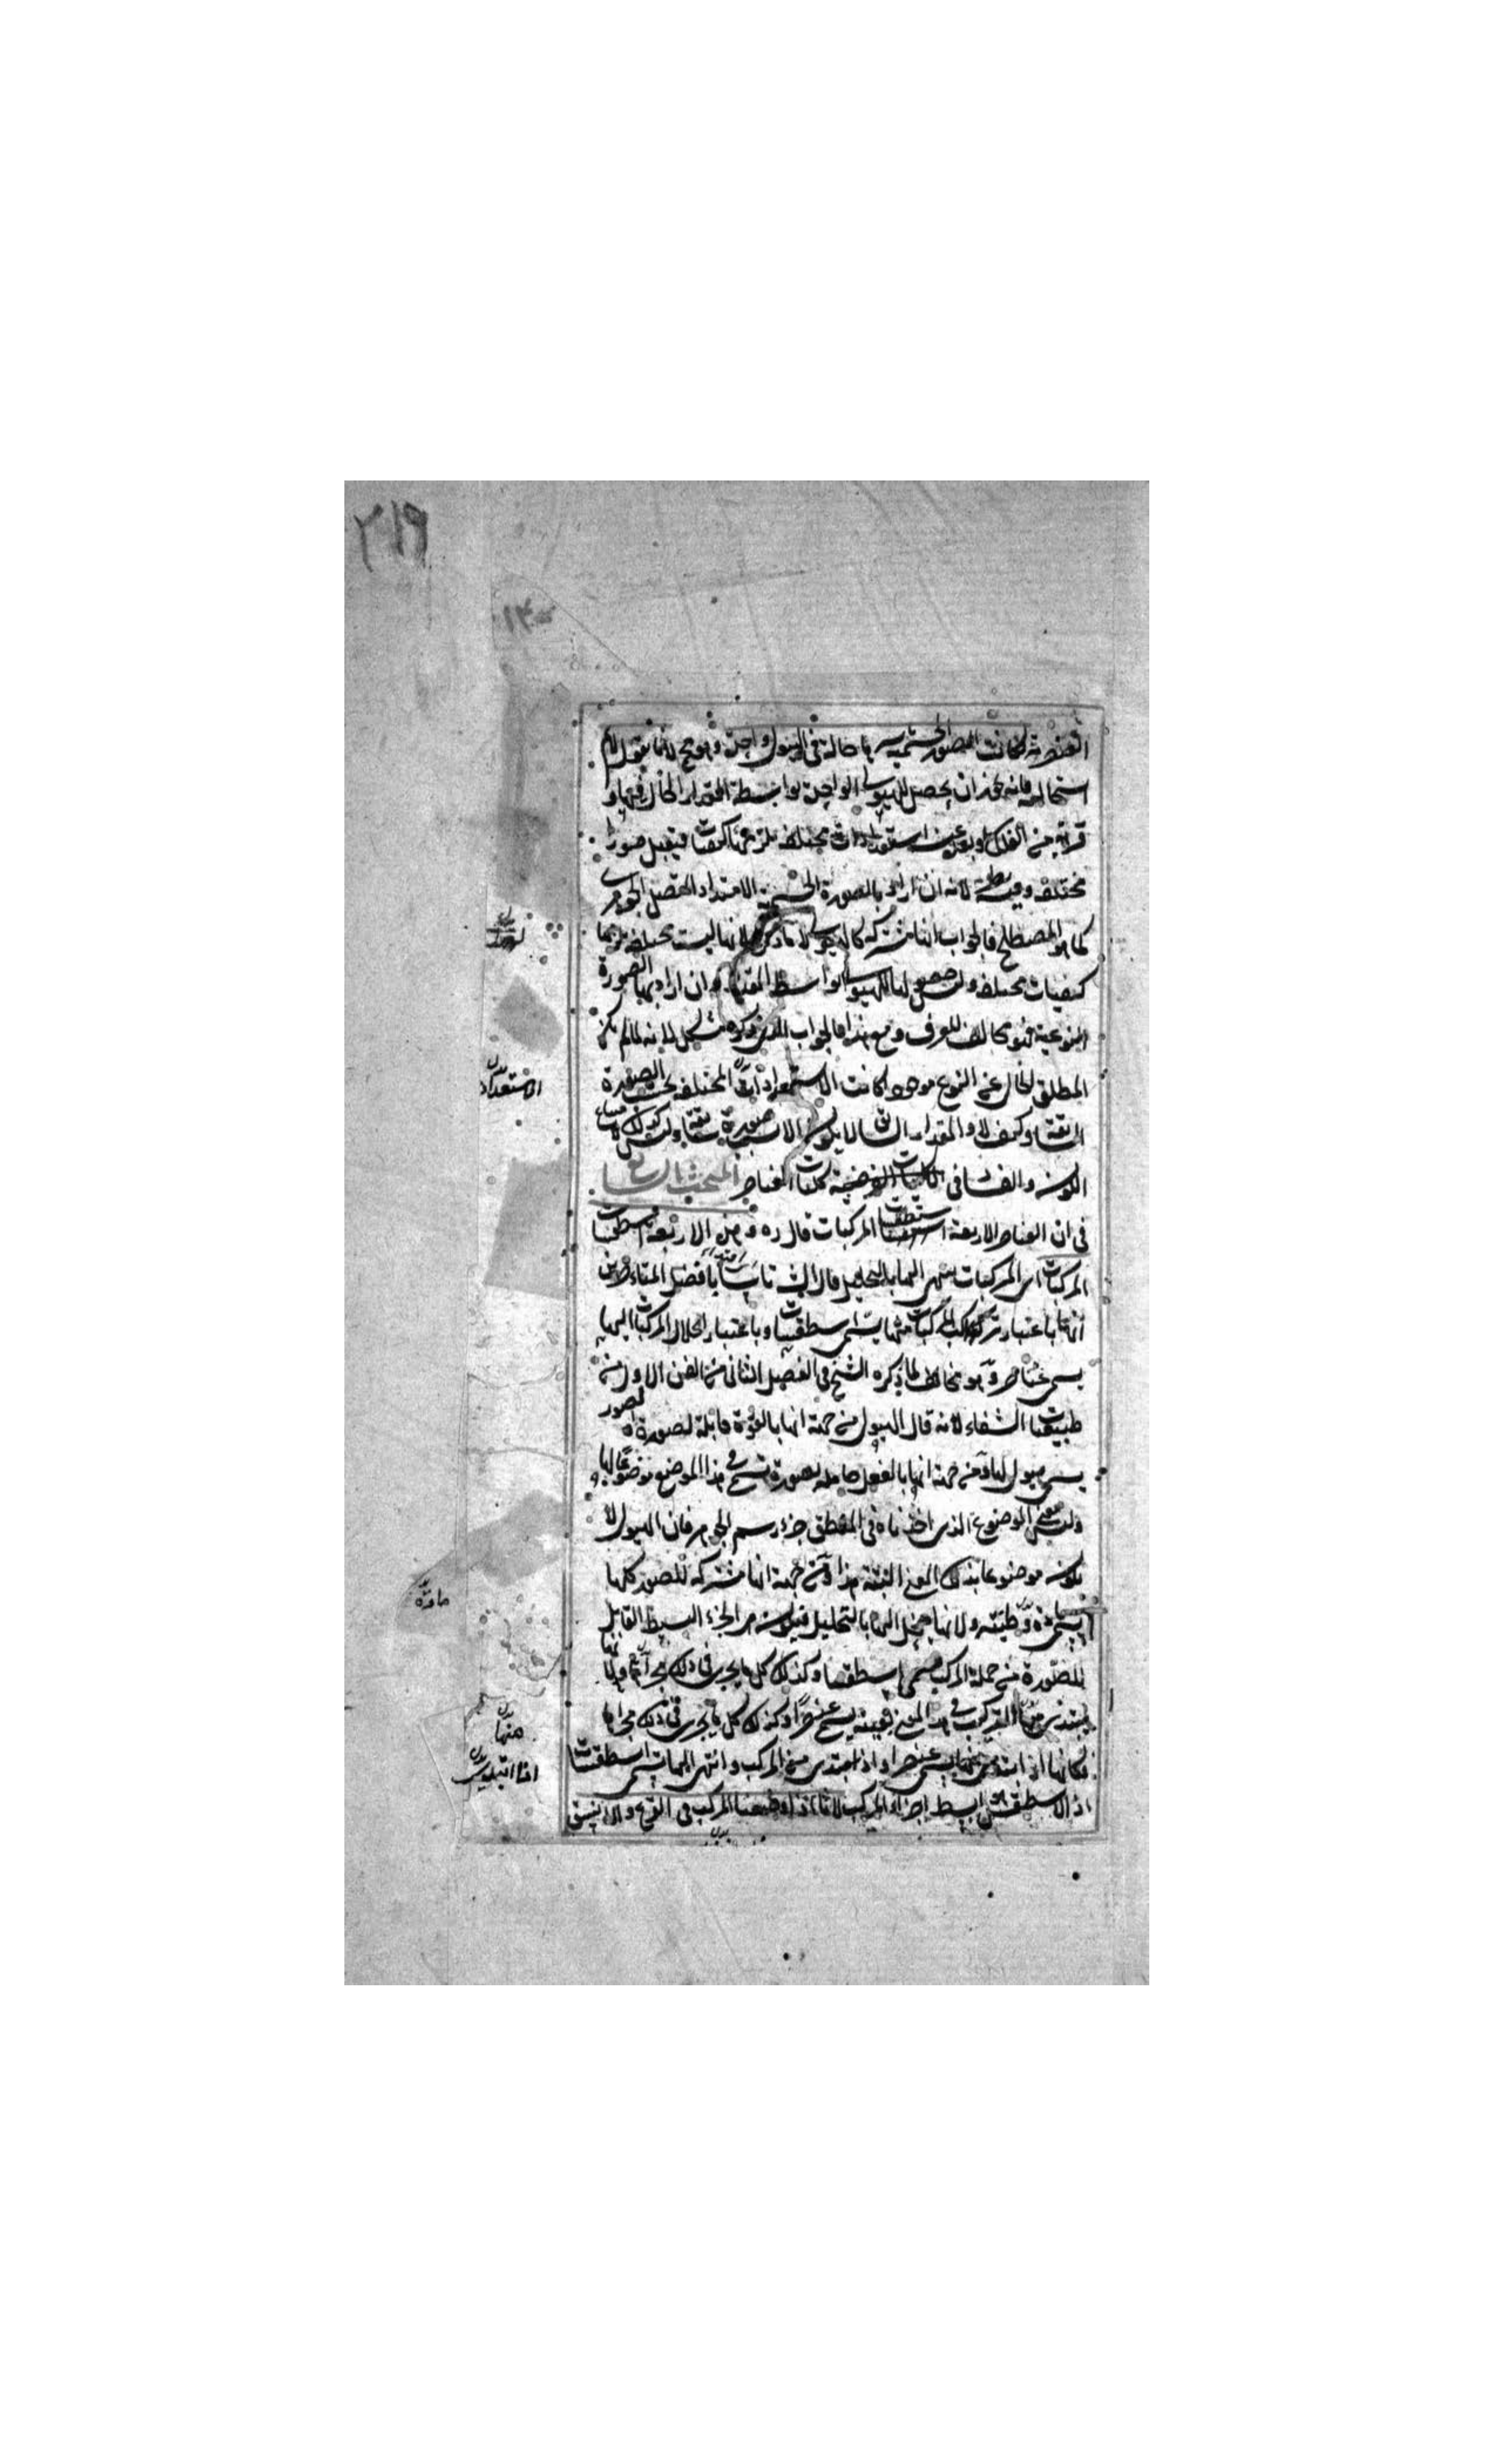 ٢١٩
١٣٠
العنصرية لكانت الصور الجسمية باسرها حالة في هيولى واحدة وهو مح لانا نقول لا نم
استحالته فانه يجوز ان يحصل للهيولى الواحدة بواسطة المقدار الحال فيها و
قربه من الفلك وبعده عنه استعدادات مختلفة تلزمها كيفيات فيقبل صورا
مختلفة وفيه نظر لانه ان اراد بالصورة الجسمية الامتداد المتصل الجوهرى
كما هو المصطلح فالجواب انها مشتركة كالهيولى لا ما ذكره لانها ليست مختلفة يلزمها
كيفيات مختلفة وليس حصولها للهيولى بواسطة المقدار وان اراد بها الصورة
النوعية فهو مخالف للعرف ومع هذا فالجواب الذى ذكره مشكل لانه لما لم يكن
المطلق الخالى عن النوع موجودا كانت الاستعدادات المختلفة بحسب الصورة
السابقة وكيف لا والمقدار السابق لا يكون الا بسبب صورة سابقة وليس كذلك
الكون والفساد في كليات العناصر المبحث الرابع
في ان العناصر الاربعة اسطقسات المركبات قال ره وهذه الاربعة اسطقسات
المركبات اى المركبات ينتهى اليها بالتحليل قال الشارح تاسيا بافضل المتاخرين
انها باعتبار تركب المركبات منها يسمى اسطقسات وباعتبار انحلال المركبات اليها
يسمى عناصر وهو مخالف لما ذكره الشيخ في الفصل الثانى من الفن الاول من
طبيعيات الشفاء لانه قال الهيولى من جهة انها بالقوة قابلة لصورة
يسمى هيولى لها ومن جهة انها بالفعل حاملة لصورة يسمى في هذا الموضع موضوعا لها و
ليس معنى الموضوع الذى اخذناه في المنطق جزء رسم الجوهر فان الهيولى لا
يكون موضوعا بذلك المعنى البتة هذا ومن جهة انها مشتركة للصور كلها
يسمى مادة وطينة ولانها ينحل اليها بالتحليل فيكون هو الجزء البسيط القابل
للصورة من جملة المركب يسمى اسطقسا وكذلك كل ما يجرى في ذلك مجراها ولانها
يبتدى منها التركيب في هذا المعنى بعينه يسمى عنصرا وكذلك كل ما يجرى في ذلك مجراها
فكانها اذا ابتدى منها يسمى عنصرا واذا ابتدى من المركب وانتهى اليها يسمى اسطقسات
اذ الاسطقس هو ابسط اجزاء المركب لانا اذا وضعنا المركب في القرع والانبيق
الاستعداد
مادة
منها
اذا ابتدى